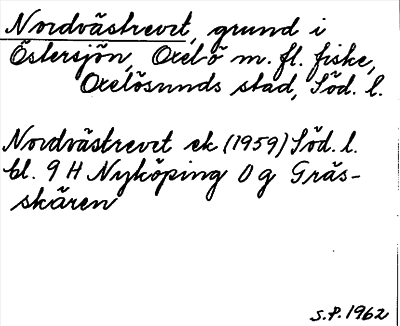 Nordvästrevet, grund i
Östersjön, Oxelö m. fl. fiske,
Oxelösunds stad, Söd. l.
Nordvästrevet ek (1959) Söd. l.
bl. 9 H Nyköping 0 g Gräs-
skären
S.P. 1962